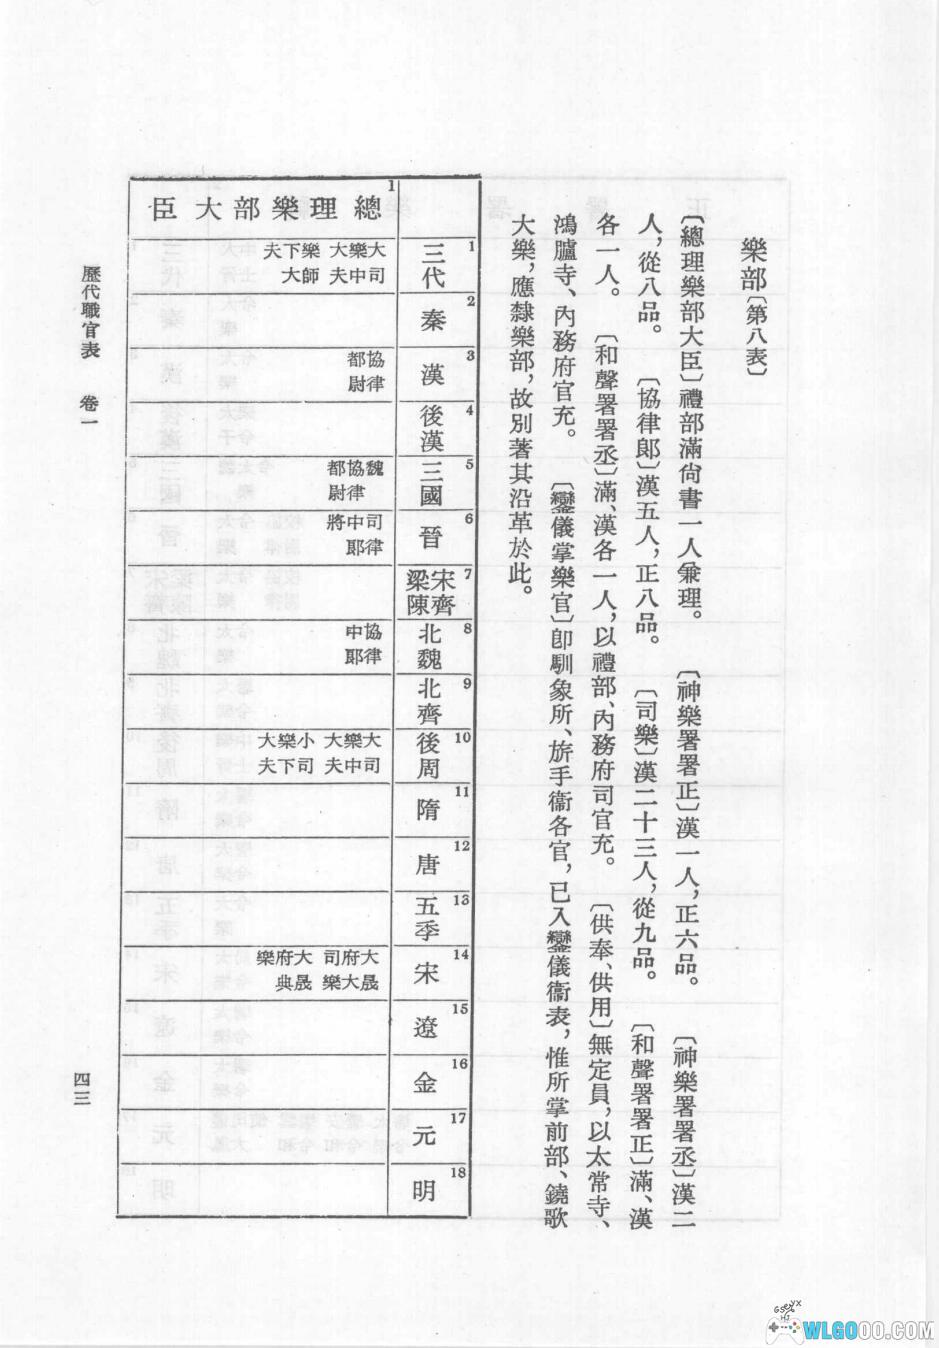 樂部〔第八表〕
〔總理樂部大臣〕禮部滿尙書一人兼理。 〔神樂署署正〕漢一人，正六品。 〔神樂署署丞〕漢二
人，從八品。 〔協律郎〕漢五人，正八品。 〔司樂〕漢二十三人，從九品。 〔和聲署署正〕滿、漢
各一人。 〔和聲署署丞〕滿、漢各一人，以禮部、內務府司官充。 〔供奉、供用〕無定員，以太常寺、
鴻臚寺、內務府官充。 〔鑾儀掌樂官〕卽馴象所、旂手衞各官，已入鑾儀衞表，惟所掌前部、鐃歌
大樂，應隸樂部，故別著其沿革於此。
1
總理樂部大臣
1 三代
大司樂中大夫 樂師下大夫
2 秦
3 漢
協律都尉
4 後漢
5 三國
魏協律都尉
6 晉
司律中郎將
7 宋齊梁陳
8 北魏
協律中郎
9 北齊
10 後周
大司樂中大夫 小司樂下大夫
11 隋
12 唐
13 五季
14 宋
大晟府大司樂 大晟府典樂
15 遼
16 金
17 元
18 明
歷代職官表 卷一
四三
WLGOOO.COM